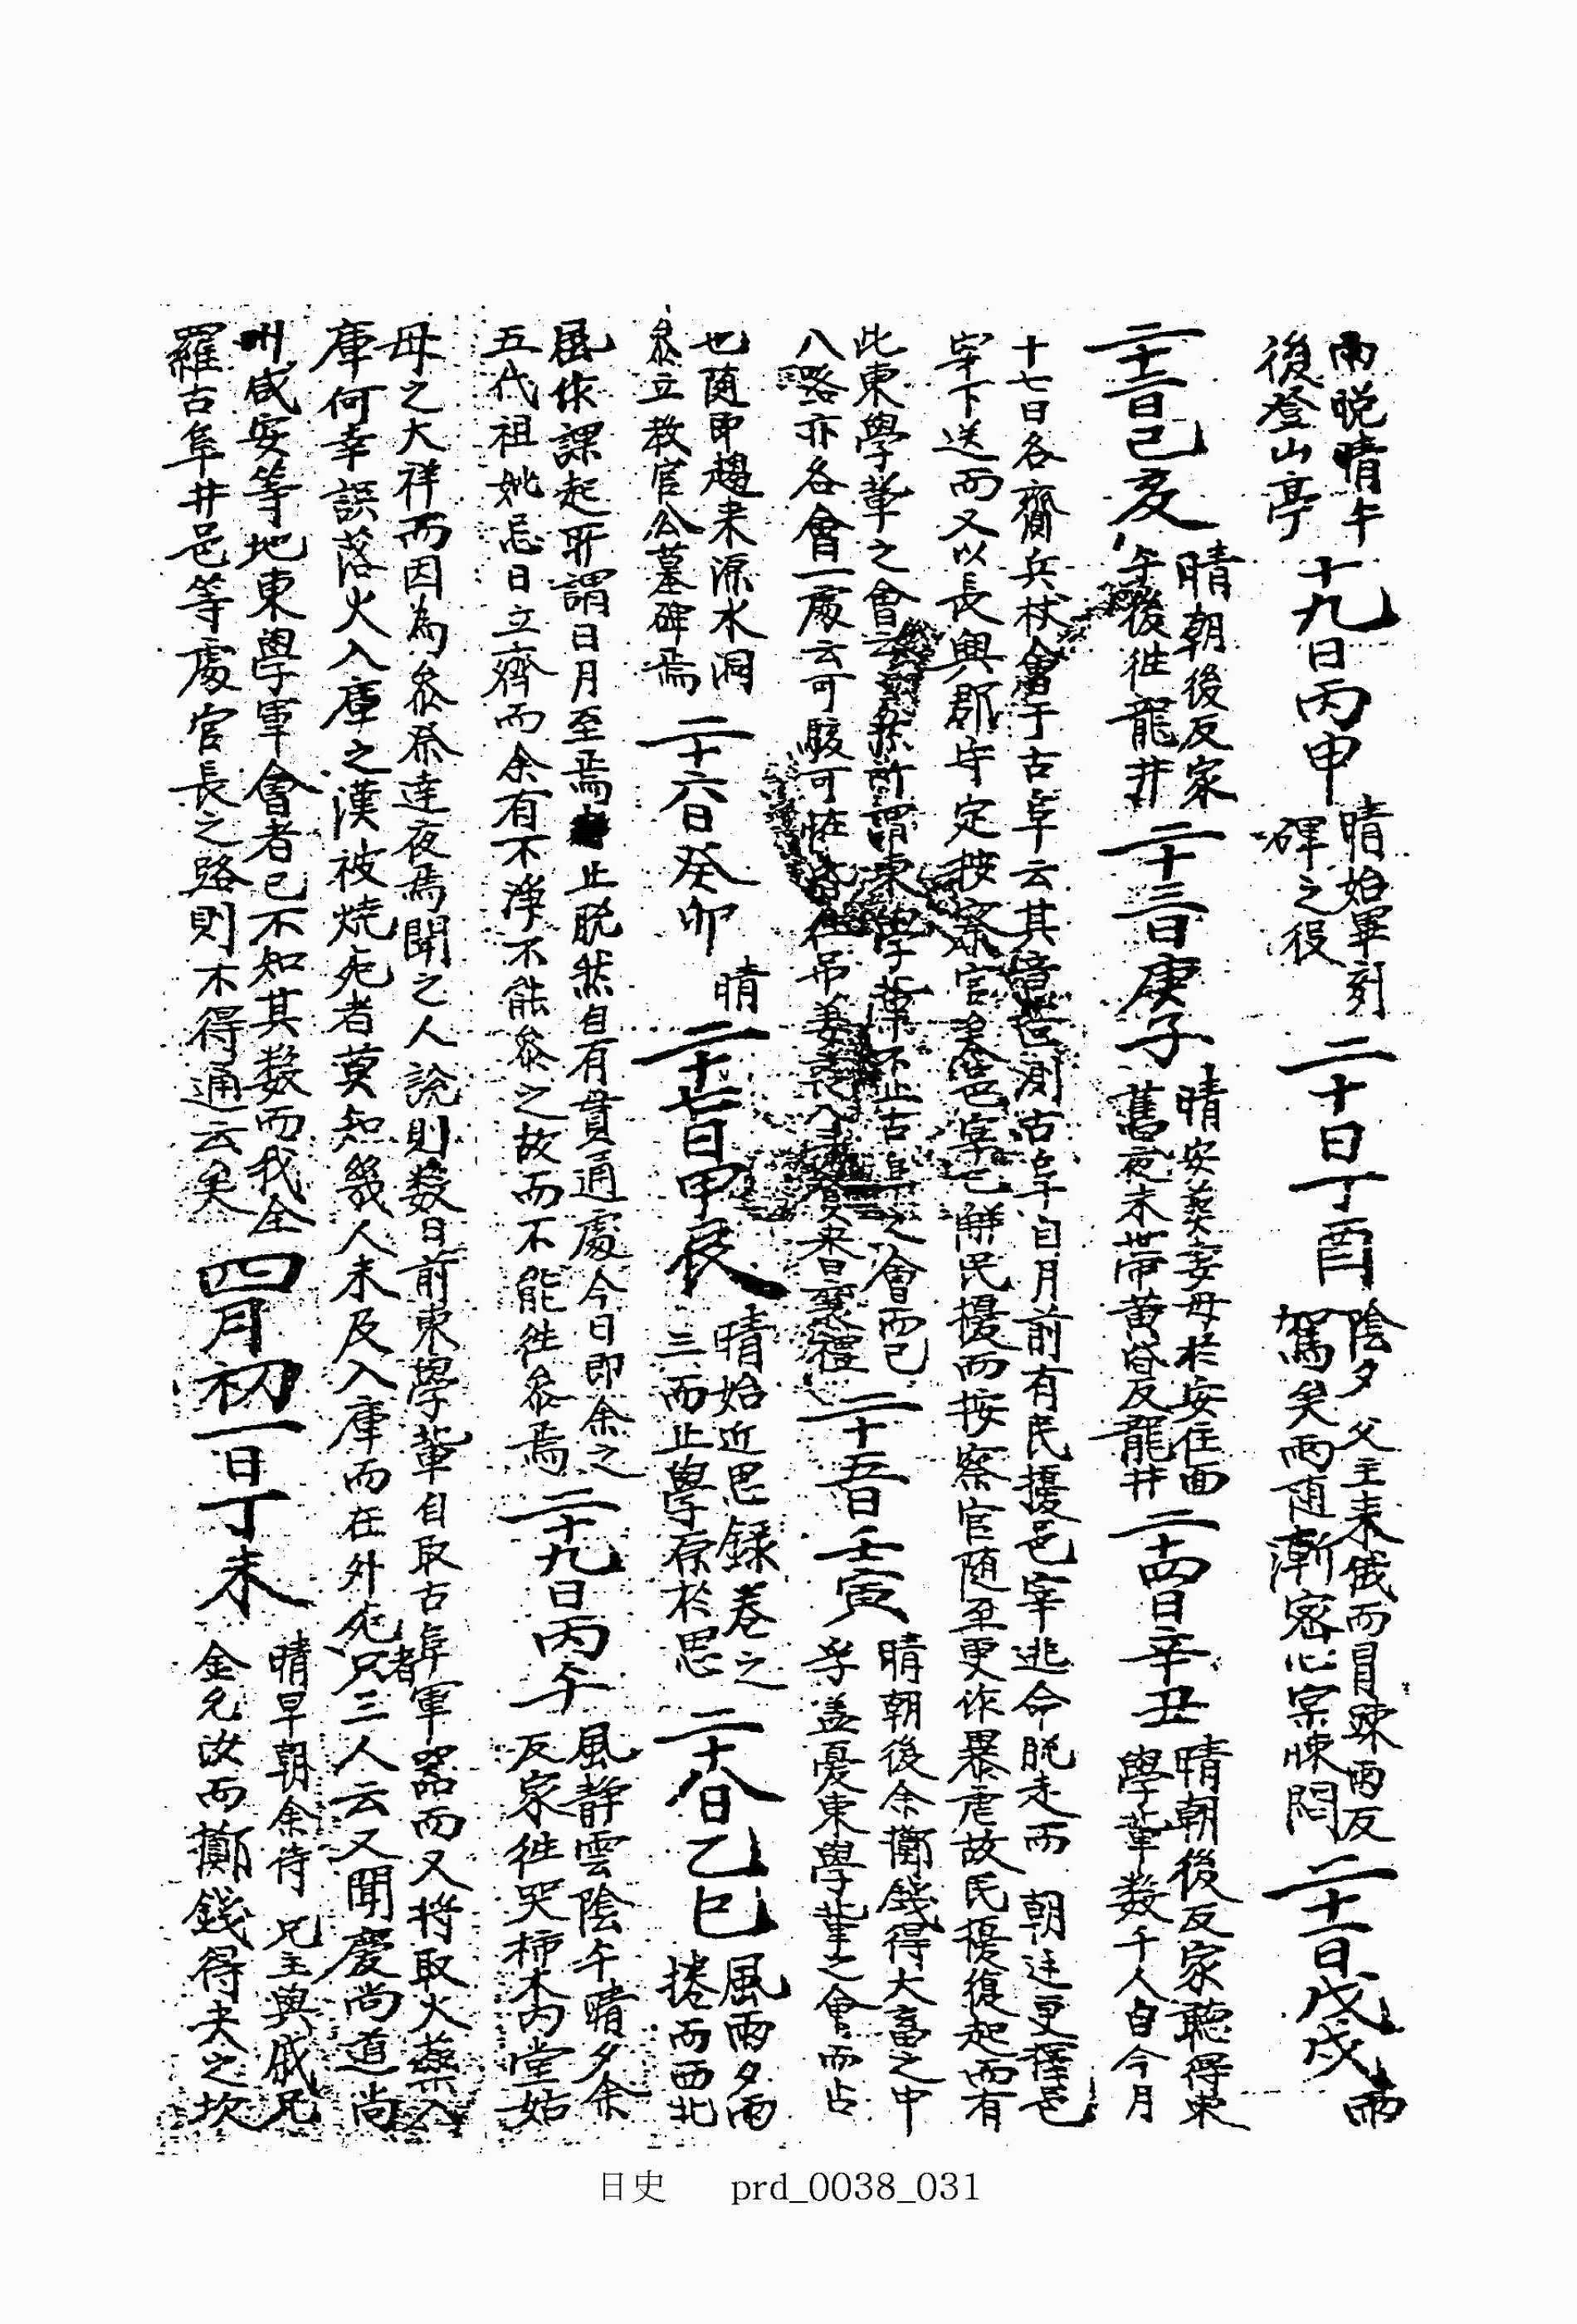 雨晩晴午
後登山亭
十九日丙申
晴始畢刻
碑之役
二十日丁酉
陰夕父主来俄而冒疎雨反
駕矣雨随漸密心窃悚悶
二十一日戊戌
雨
二十二日己亥
晴朝後反家
午後徃龍井
二十三日庚子
晴安葬妻母於安住面
舊夜未帶黃昏反龍井
二十四日辛丑
晴朝後反家聽得東
學軰数千人自今月
十七日各齎兵杖會于古阜云其測古阜自月前有民擾邑宰逃命脱走而 朝廷更擇邑
宰下送而又以長興郡守定按察官矣邑宰已解民擾而按察官随至更作暴虐故民擾復起而有
此東學軰之會云所謂東學軰不止古阜之會而已
八路亦各會一處云可駭可恠徃吊姜喪襄禮
二十五日壬寅
晴朝後余擲錢得大畜之中
孚盖憂東學軰之會而占
也随即趨来源水洞
叅立教官公墓碑焉
二十六日癸卯
晴
二十七日甲辰
晴始近思録卷之
三而止學原於思
二十八日乙巳
風雨夕雨
捲而西北
風作課起所謂日月至焉止脱然自有貫通處今日即余之
五代祖妣忌日立齊而余有不淨不能叅之故而不能徃叅焉
二十九日丙午
風静雲陰午晴夕余
反家徃哭柿木内堂姑
母之大祥而因為叅祭達夜焉聞之人説則数日前東學軰自取古阜軍器而又将取火藥入
庫何幸誤落火入庫之漢被燒死者莫知幾人未及入庫而在外死者只三人云又聞慶尚道尚
州咸安等地東學軍會者已不知其数而我全
羅古阜井邑等處官長之路則不得通云矣
四月初一日丁未
晴早朝余侍 兄主與戚兄
金允汝而擲錢得夬之坎
日史 prd_0038_031